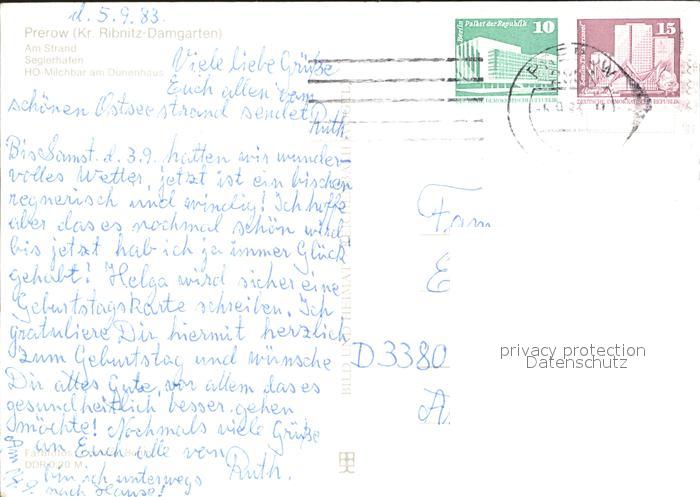 d. 5.9.83.
Prerow (Kr. Ribnitz-Damgarten)
Am Strand
Seglerhafen
HO-Milchbar am Dünenhaus
Viele liebe Grüße
Euch allen vom
schönen Ostseestrand sendet
Ruth.
Bis Samst. d. 3.9. hatten wir wunder-
volles Wetter, jetzt ist ein bischen
regnerisch und windig! Ich hoffe
aber das es nochmal schön wird
bis jetzt hab ich ja immer Glück
gehabt! Helga wird sicher eine
Geburtstagskarte schreiben. Ich
gratuliere Dir hiermit herzlich
zum Geburtstag und wünsche
Dir alles Gute, vor allem das es
gesundheitlich besser gehen
möchte! Nochmals viele Grüße
an Euch alle von
Ruth.
Am
bin ich unterwegs
nach Hause!
DDR 0,20 M
BILD UND HEIMAT
Berlin Palast der Republik
10
15
DEUTSCHE DEMOKRATISCHE REPUBLIK
PREROW
Fam
E
D 3380
privacy protection
Datenschutz